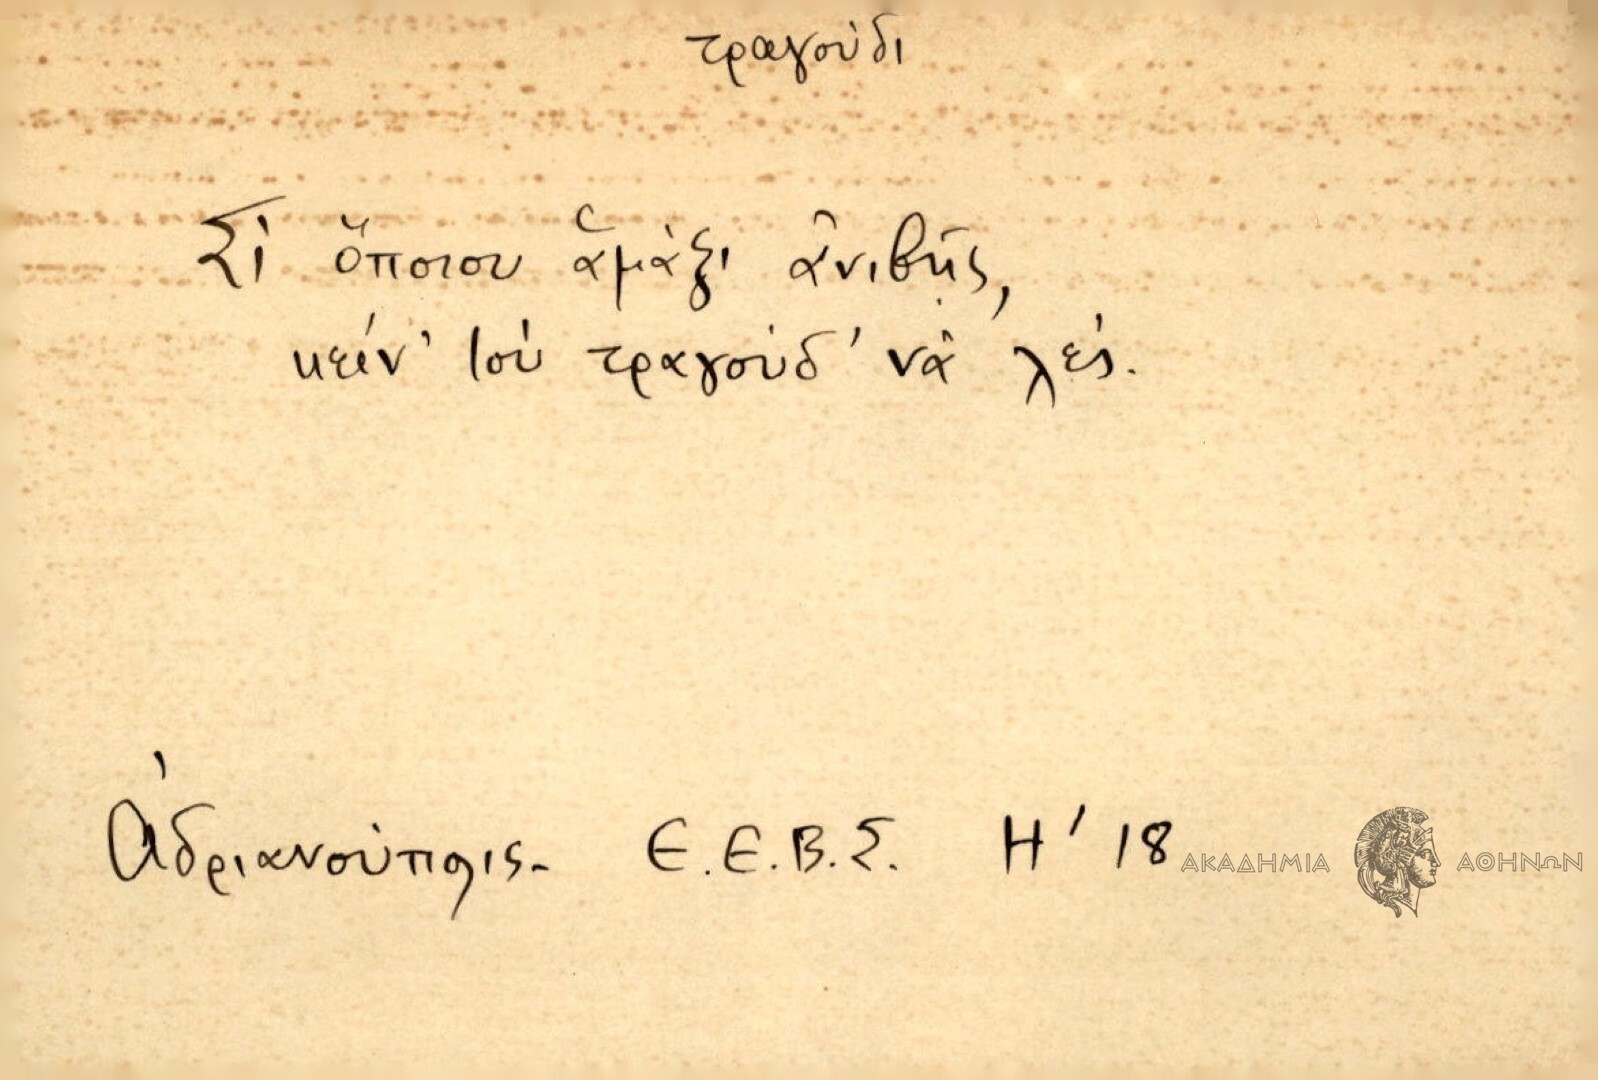 τραγούδι
Σὶ ὅποιου ἁμάξι ἀνιβῇς,
κείν' τοὺ τραγούδ' νὰ λές.
Ἀδριανούπολις. Ε.Ε.Β.Σ. Η' 18
ΑΚΑΔΗΜΙΑ ΑΘΗΝΩΝ